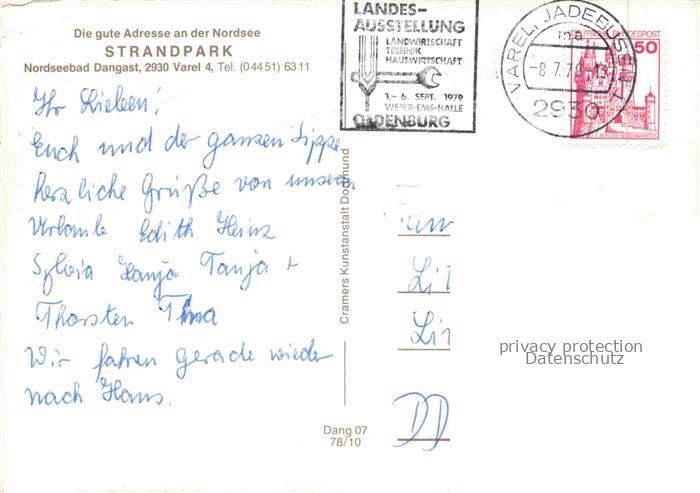 Die gute Adresse an der Nordsee
STRANDPARK
Nordseebad Dangast, 2930 Varel 4, Tel. (04451) 6311
LANDES-
AUSSTELLUNG
LANDWIRTSCHAFT
TECHNIK
HAUSWIRTSCHAFT
1.–6. SEPT. 1979
WESER-EMS-HALLE
OLDENBURG
VAREL, JADEBUSEN 1
ma
-8.7.79-13
2930
DEUTSCHE BUNDESPOST
50
Ihr Lieben!
Euch und der ganzen Sippe
herzliche Grüße von unserem
Urlaub Edith Heinz
Sylvia Hanja Tanja +
Thorsten Tina
Wir fahren gerade wieder
nach Haus.
Cramers Kunstanstalt Dortmund
Dang 07
78/10
privacy protection
Datenschutz